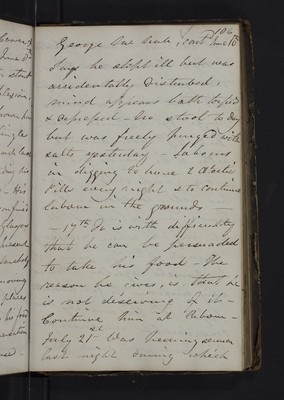 106
George
June 16th
Says he slept ill but was
accidentally disturbed.
mind appears both torpid
& depressed - No stool to day
but was freely purged with
salts yesterday - Labours
in digging to have 2
Pills every night & to continue
labour in the grounds -
- 17th It is with difficulty
that he can be persuaded
to take his food - The
reason he gives, is that he
is not deserving of it -
Continue him at labour -
July 21st Was
last night during which